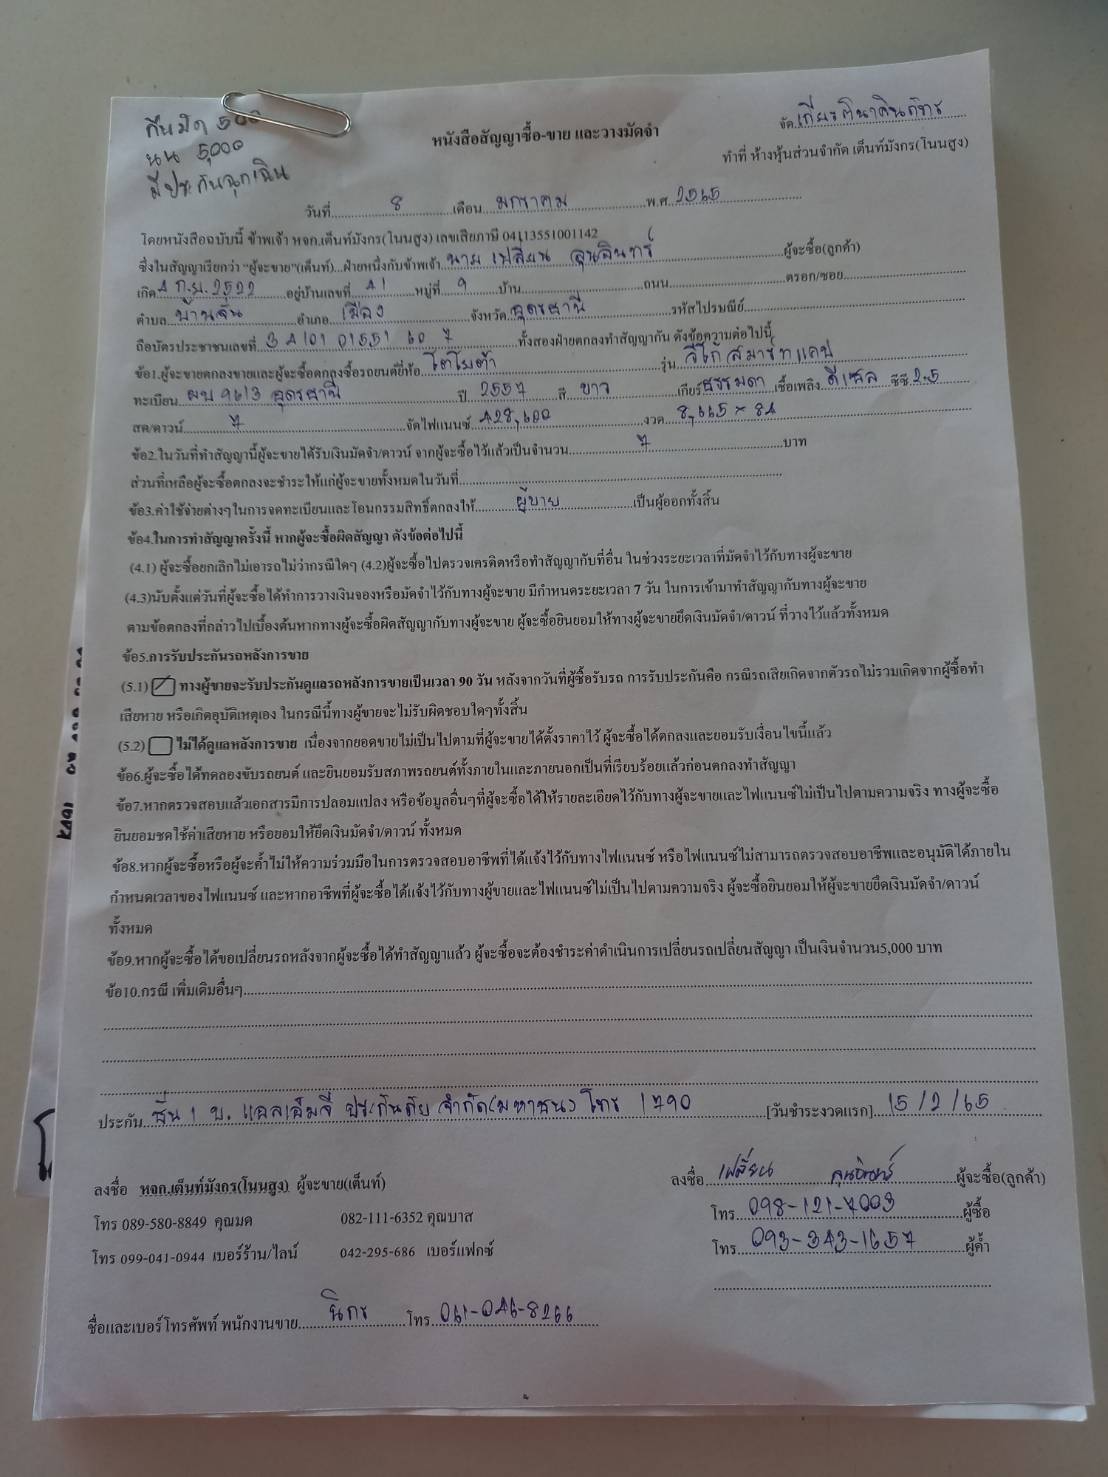 คืนมัด 500
นน 5,000
มีประกันฉุกเฉิน
จัด เกียรตินาคินภัทร
หนังสือสัญญาซื้อ-ขาย และวางมัดจำ
ทำที่ ห้างหุ้นส่วนจำกัด เต็นท์มังกร(โนนสูง)
วันที่ 8 เดือน มกราคม พ.ศ. 2565
โดยหนังสือฉบับนี้ ข้าพเจ้า หจก.เต็นท์มังกร(โนนสูง) เลขเสียภาษี 04113551001142
ซึ่งในสัญญาเรียกว่า "ผู้จะขาย"(เต็นท์)...ฝ่ายหนึ่งกับข้าพเจ้า นาย เปลี่ยน ผู้จะซื้อ(ลูกค้า)
เกิด 4 ก.ม. 2522 อยู่บ้านเลขที่ 41 หมู่ที่ 9 บ้าน ถนน ตรอก/ซอย
ตำบล บ้านจั่น อำเภอ เมือง จังหวัด อุดรธานี รหัสไปรษณีย์
ถือบัตรประชาชนเลขที่ 3 4101 01551 60 7 ทั้งสองฝ่ายตกลงทำสัญญากัน ดังข้อความต่อไปนี้
ข้อ1.ผู้จะขายตกลงขายและผู้จะซื้อตกลงซื้อรถยนต์ยี่ห้อ โตโยต้า รุ่น วีโก้ สมาร์ทแคป
ทะเบียน ผบ 9613 อุดรธานี ปี 2557 สี ขาว เกียร์ ธรรมดา เชื้อเพลิง ดีเซล ซีซี 2.5
สด/ดาวน์ จัดไฟแนนซ์ 428,600 งวด 8,665 × 84
ข้อ2.ในวันที่ทำสัญญานี้ผู้จะขายได้รับเงินมัดจำ/ดาวน์ จากผู้จะซื้อไว้แล้วเป็นจำนวน บาท
ส่วนที่เหลือผู้จะซื้อตกลงจะชำระให้แก่ผู้จะขายทั้งหมดในวันที่
ข้อ3.ค่าใช้จ่ายต่างๆในการจดทะเบียนและโอนกรรมสิทธิ์ตกลงให้ ผู้ขาย เป็นผู้ออกทั้งสิ้น
ข้อ4.ในการทำสัญญาครั้งนี้ หากผู้จะซื้อผิดสัญญา ดังข้อต่อไปนี้
(4.1) ผู้จะซื้อยกเลิกไม่เอารถไม่ว่ากรณีใดๆ (4.2)ผู้จะซื้อไปตรวจเครดิตหรือทำสัญญากับที่อื่น ในช่วงระยะเวลาที่มัดจำไว้กับทางผู้จะขาย
(4.3)นับตั้งแต่วันที่ผู้จะซื้อได้ทำการวางเงินจองหรือมัดจำไว้กับทางผู้จะขาย มีกำหนดระยะเวลา 7 วัน ในการเข้ามาทำสัญญากับทางผู้จะขาย
ตามข้อตกลงที่กล่าวไปเบื้องต้นหากทางผู้จะซื้อผิดสัญญากับทางผู้จะขาย ผู้จะซื้อยินยอมให้ทางผู้จะขายยึดเงินมัดจำ/ดาวน์ ที่วางไว้แล้วทั้งหมด
ข้อ5.การรับประกันรถหลังการขาย
(5.1) ทางผู้ขายจะรับประกันดูแลรถหลังการขายเป็นเวลา 90 วัน หลังจากวันที่ผู้ซื้อรับรถ การรับประกันคือ กรณีรถเสียเกิดจากตัวรถไม่รวมเกิดจากผู้ซื้อทำ
เสียหาย หรือเกิดอุบัติเหตุเอง ในกรณีนี้ทางผู้ขายจะไม่รับผิดชอบใดๆทั้งสิ้น
(5.2) ไม่ได้ดูแลหลังการขาย เนื่องจากยอดขายไม่เป็นไปตามที่ผู้จะขายได้ตั้งราคาไว้ ผู้จะซื้อได้ตกลงและยอมรับเงื่อนไขนี้แล้ว
ข้อ6.ผู้จะซื้อได้ทดลองขับรถยนต์ และยินยอมรับสภาพรถยนต์ทั้งภายในและภายนอกเป็นที่เรียบร้อยแล้วก่อนตกลงทำสัญญา
ข้อ7.หากตรวจสอบแล้วเอกสารมีการปลอมแปลง หรือข้อมูลอื่นๆที่ผู้จะซื้อได้ให้รายละเอียดไว้กับทางผู้จะขายและไฟแนนซ์ไม่เป็นไปตามความจริง ทางผู้จะซื้อ
ยินยอมชดใช้ค่าเสียหาย หรือยอมให้ยึดเงินมัดจำ/ดาวน์ ทั้งหมด
ข้อ8.หากผู้จะซื้อหรือผู้จะค้ำไม่ให้ความร่วมมือในการตรวจสอบอาชีพที่ได้แจ้งไว้กับทางไฟแนนซ์ หรือไฟแนนซ์ไม่สามารถตรวจสอบอาชีพและอนุมัติได้ภายใน
กำหนดเวลาของไฟแนนซ์ และหากอาชีพที่ผู้จะซื้อได้แจ้งไว้กับทางผู้ขายและไฟแนนซ์ไม่เป็นไปตามความจริง ผู้จะซื้อยินยอมให้ผู้จะขายยึดเงินมัดจำ/ดาวน์
ทั้งหมด
ข้อ9.หากผู้จะซื้อได้ขอเปลี่ยนรถหลังจากผู้จะซื้อได้ทำสัญญาแล้ว ผู้จะซื้อจะต้องชำระค่าดำเนินการเปลี่ยนรถเปลี่ยนสัญญา เป็นเงินจำนวน5,000 บาท
ข้อ10.กรณี เพิ่มเติมอื่นๆ
ประกัน ชั้น 1 บ. แอลเอ็มจี ประกันภัย จำกัด(มหาชน) โทร 1790 [วันชำระงวดแรก] 15/2/65
ลงชื่อ หจก.เต็นท์มังกร(โนนสูง) ผู้จะขาย(เต็นท์)
ลงชื่อ เปลี่ยน ผู้จะซื้อ(ลูกค้า)
โทร 089-580-8849 คุณมด 082-111-6352 คุณบาส
โทร 098-121-7003 ผู้ซื้อ
โทร 099-041-0944 เบอร์ร้าน/ไลน์ 042-295-686 เบอร์แฟกซ์
โทร 093-343-1657 ผู้ค้ำ
ชื่อและเบอร์โทรศัพท์ พนักงานขาย นิกร โทร 061-046-8266